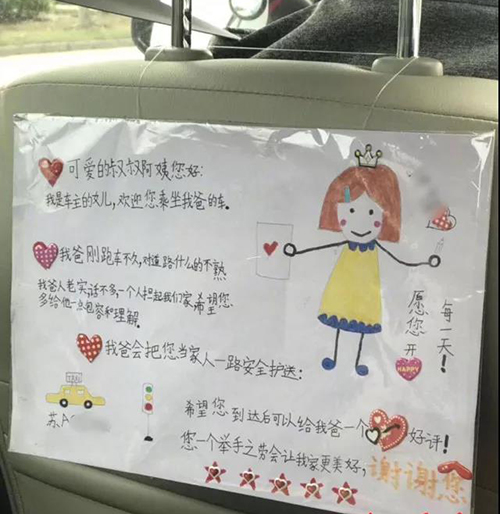 可爱的叔叔阿姨您好:
我是车主的女儿,欢迎您乘坐我爸的车.
我爸刚跑车不久,对道路什么的不熟
我爸人老实,话不多,一个人担起我们家,希望您
多给他一点包容和理解.
我爸会把您当家人一路安全护送:
希望您到达后可以给我爸一个好评!
您一个举手之劳会让我家更美好,谢谢您
TAXI
苏A
愿您开
HAPPY
每一天!